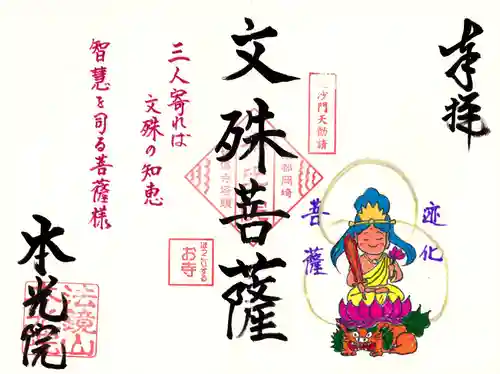 奉拝
迹化
菩薩
文殊菩薩
三人寄れば
文殊の知恵
智慧を司る菩薩様
沙門天勧請
都岡崎
お寺
法鏡山
本光院